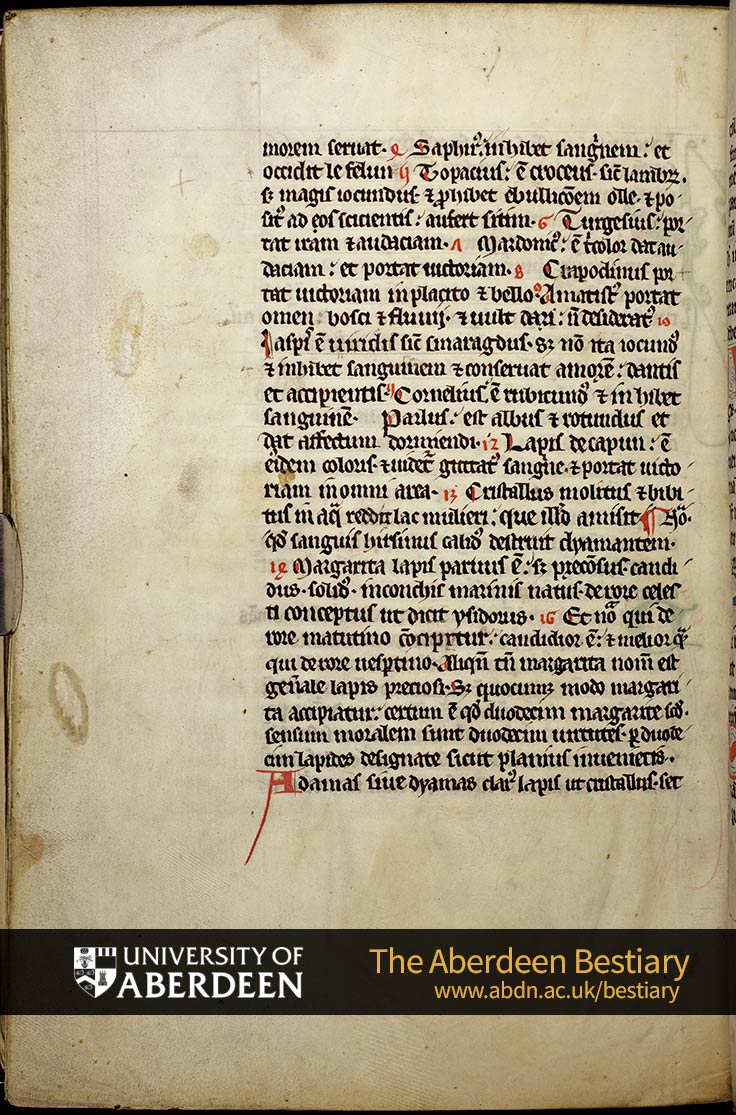 morem seruat. 4 Saphir᷒ inhibet sangͥnem: et
occidit le felun 5 Topacius: ē croceus. sic̄ lambr̄.
sꝫ magis iocundus. ⁊ ꝓhibet ebullicōem olle. ⁊ po
sit᷒ ad eos scicientis: aufert sitim. 6 Turgesius: por
tat uram ⁊ audaciam. 7 Mardonic᷒: ē tͥcolor dat au
daciam: et portat uictoriam. 8 Crapodinus por
tat uictoriam in placito ⁊ bello. 9 Amatist᷒ portat
omen: bosci ⁊ fluuij. ⁊ uult dari: n̄ desiderat᷒ 10
Iaspis᷒ ē uiridis sic̄ smaragdus. Sꝫ nō ita iocund᷒
⁊ inhibet sanguinem ⁊ conseruat amorē: dantis
et accipientis. 11 Cornelius ē rubicund᷒ ⁊ inhibet
sanguinē. Parlus: est albus ⁊ rotundus et
dat affectum dormiendi. 12 Lapis de capun: ē
eiꝰdem coloris. ⁊ uidet᷑ guttat᷒ sangͥne. ⁊ portat uicto
riam in omni area. 13 Cristallus molitus ⁊ bibi
tus in aq̄ reddit lac mulieri: que illd̓ amisit ¶
qd̓ sanguis hircinus calid᷒ destruit dyamantem.
14 Margarita lapis paruus ē: sꝫ preco̅sus. candi
dus. solid᷒. in conchis marinis natus. de rore celes
ti conceptus ut dicit ysidorus. 16 Et nō qui de
rore matutino cōcipitur: candidior ē: ⁊ melior qͣ̄
qui de rore uesꝑtino. Aliqn̄ tn̄ margarita nom̄ est
gen̄ale lapis preciosi. Sꝫ quocumqꝫ modo margari
ta accipiatur: certum ē qd̓ duodecim margarite scd̓.
sensum moralem sunt duodecim uirtutes. ꝑ duode
cim lapides designate sicut planius inuenietis.
Adamas siue dyamas clar᷒ lapis ut cristallus. set
UNIVERSITY OF
ABERDEEN
The Aberdeen Bestiary
www.abdn.ac.uk/bestiary